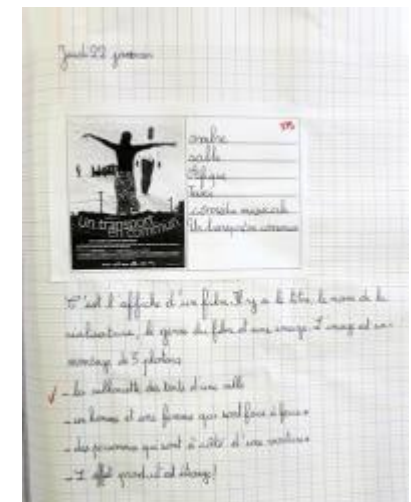 Jeudi 22 janvier
ombre
salle
Afrique
comédie musicale
Un transport commun
Un transport
en commun
C'est l'affiche d'un film. Il y a le titre, le nom de la
réalisatrice, le genre du film et une image. L'image est un
montage de 5 photos
- la silhouette des toits d'une ville
- un homme et une femme qui sont face à face
- des personnes qui sont à côté d'une voiture
- L'effet produit est étrange!